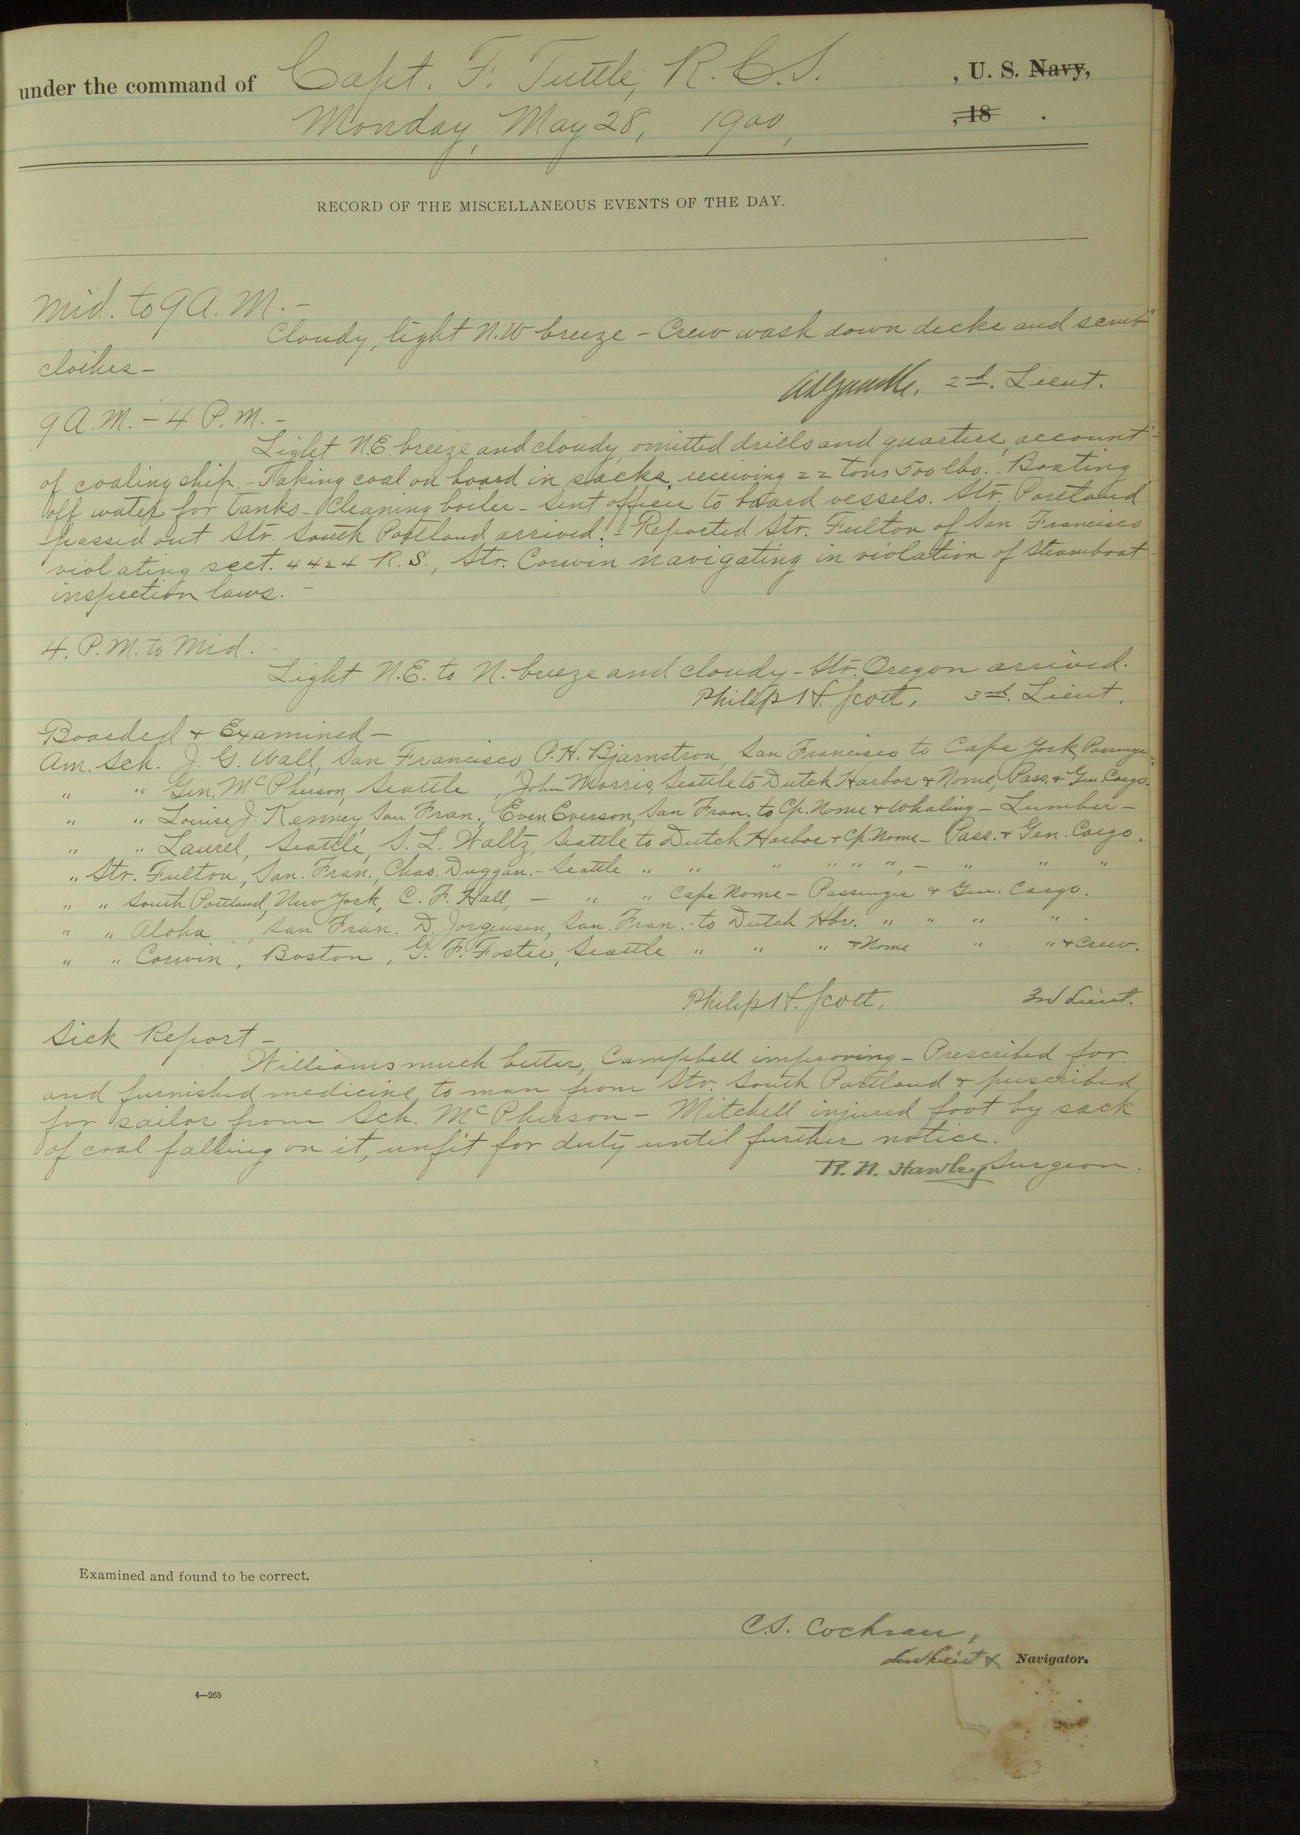 under the command of Capt. F. Tuttle, R. C. S. , U. S. Navy,
Monday, May 28, 1900, , 18 .
RECORD OF THE MISCELLANEOUS EVENTS OF THE DAY.
Mid. to 9 A. M. –
Cloudy, light N.W breeze – Crew wash down decks and scrub
clothes –
2nd. Lieut.
9 A. M. – 4 P. M. –
Light N.E. breeze and cloudy, omitted drills and quarters, account
of coaling ship. – Taking coal on board in sacks, receiving 22 tons 500 lbs. – Boating
off water for tanks – Cleaning boiler – Sent officer to board vessels. Str. Portland
passed out Str. South Portland arrived. – Reported Str. Fulton of San Francisco
violating sect. 4424 R. S., Str. Corwin navigating in violation of Steamboat
inspection laws. –
4. P. M. to Mid. –
Light N.E. to N. breeze and cloudy – Str. Oregon arrived.
Philip H. Scott, 3rd. Lieut.
Boarded & Examined –
Am. Sch. J. G. Wall, San Francisco P. H. Bjarnstron, San Francisco to Cape York, Passenger
" " Gen. McPherson, Seattle, John Morris, Seattle to Dutch Harbor & Nome, Pass. & Gen. Cargo.
" " Louise J. Kenney, San Fran., Even Everson, San Fran. to Cp. Nome & Whaling – Lumber –
" " Laurel, Seattle, S. L. Waltz, Seattle to Dutch Harbor & Cp. Nome – Pass. & Gen. Cargo.
" Str. Fulton, San. Fran., Chas. Duggan. – Seattle " " " " " " " – " " "
" " South Portland, New York, C. F. Hall, – " " Cape Nome – Passenger & Gen. Cargo.
" " Aloha, San Fran. D. Jorgensen, San. Fran. – to Dutch Hbr. " " " " .
" " Corwin, Boston, G. F. Foster, Seattle " " " & Nome " " & Crew.
Philip H. Scott, 3rd Lieut.
Sick Report –
Williams much better, Campbell improving – Prescribed for
and furnished medicine, to man from Str. South Portland & prescribed
for sailor from Sch. McPherson – Mitchell injured foot by sack
of coal falling on it, unfit for duty until further notice.
R. N. Hawley Surgeon.
Examined and found to be correct.
C. S. Cochran,
1st Lieut & Navigator.
4—265